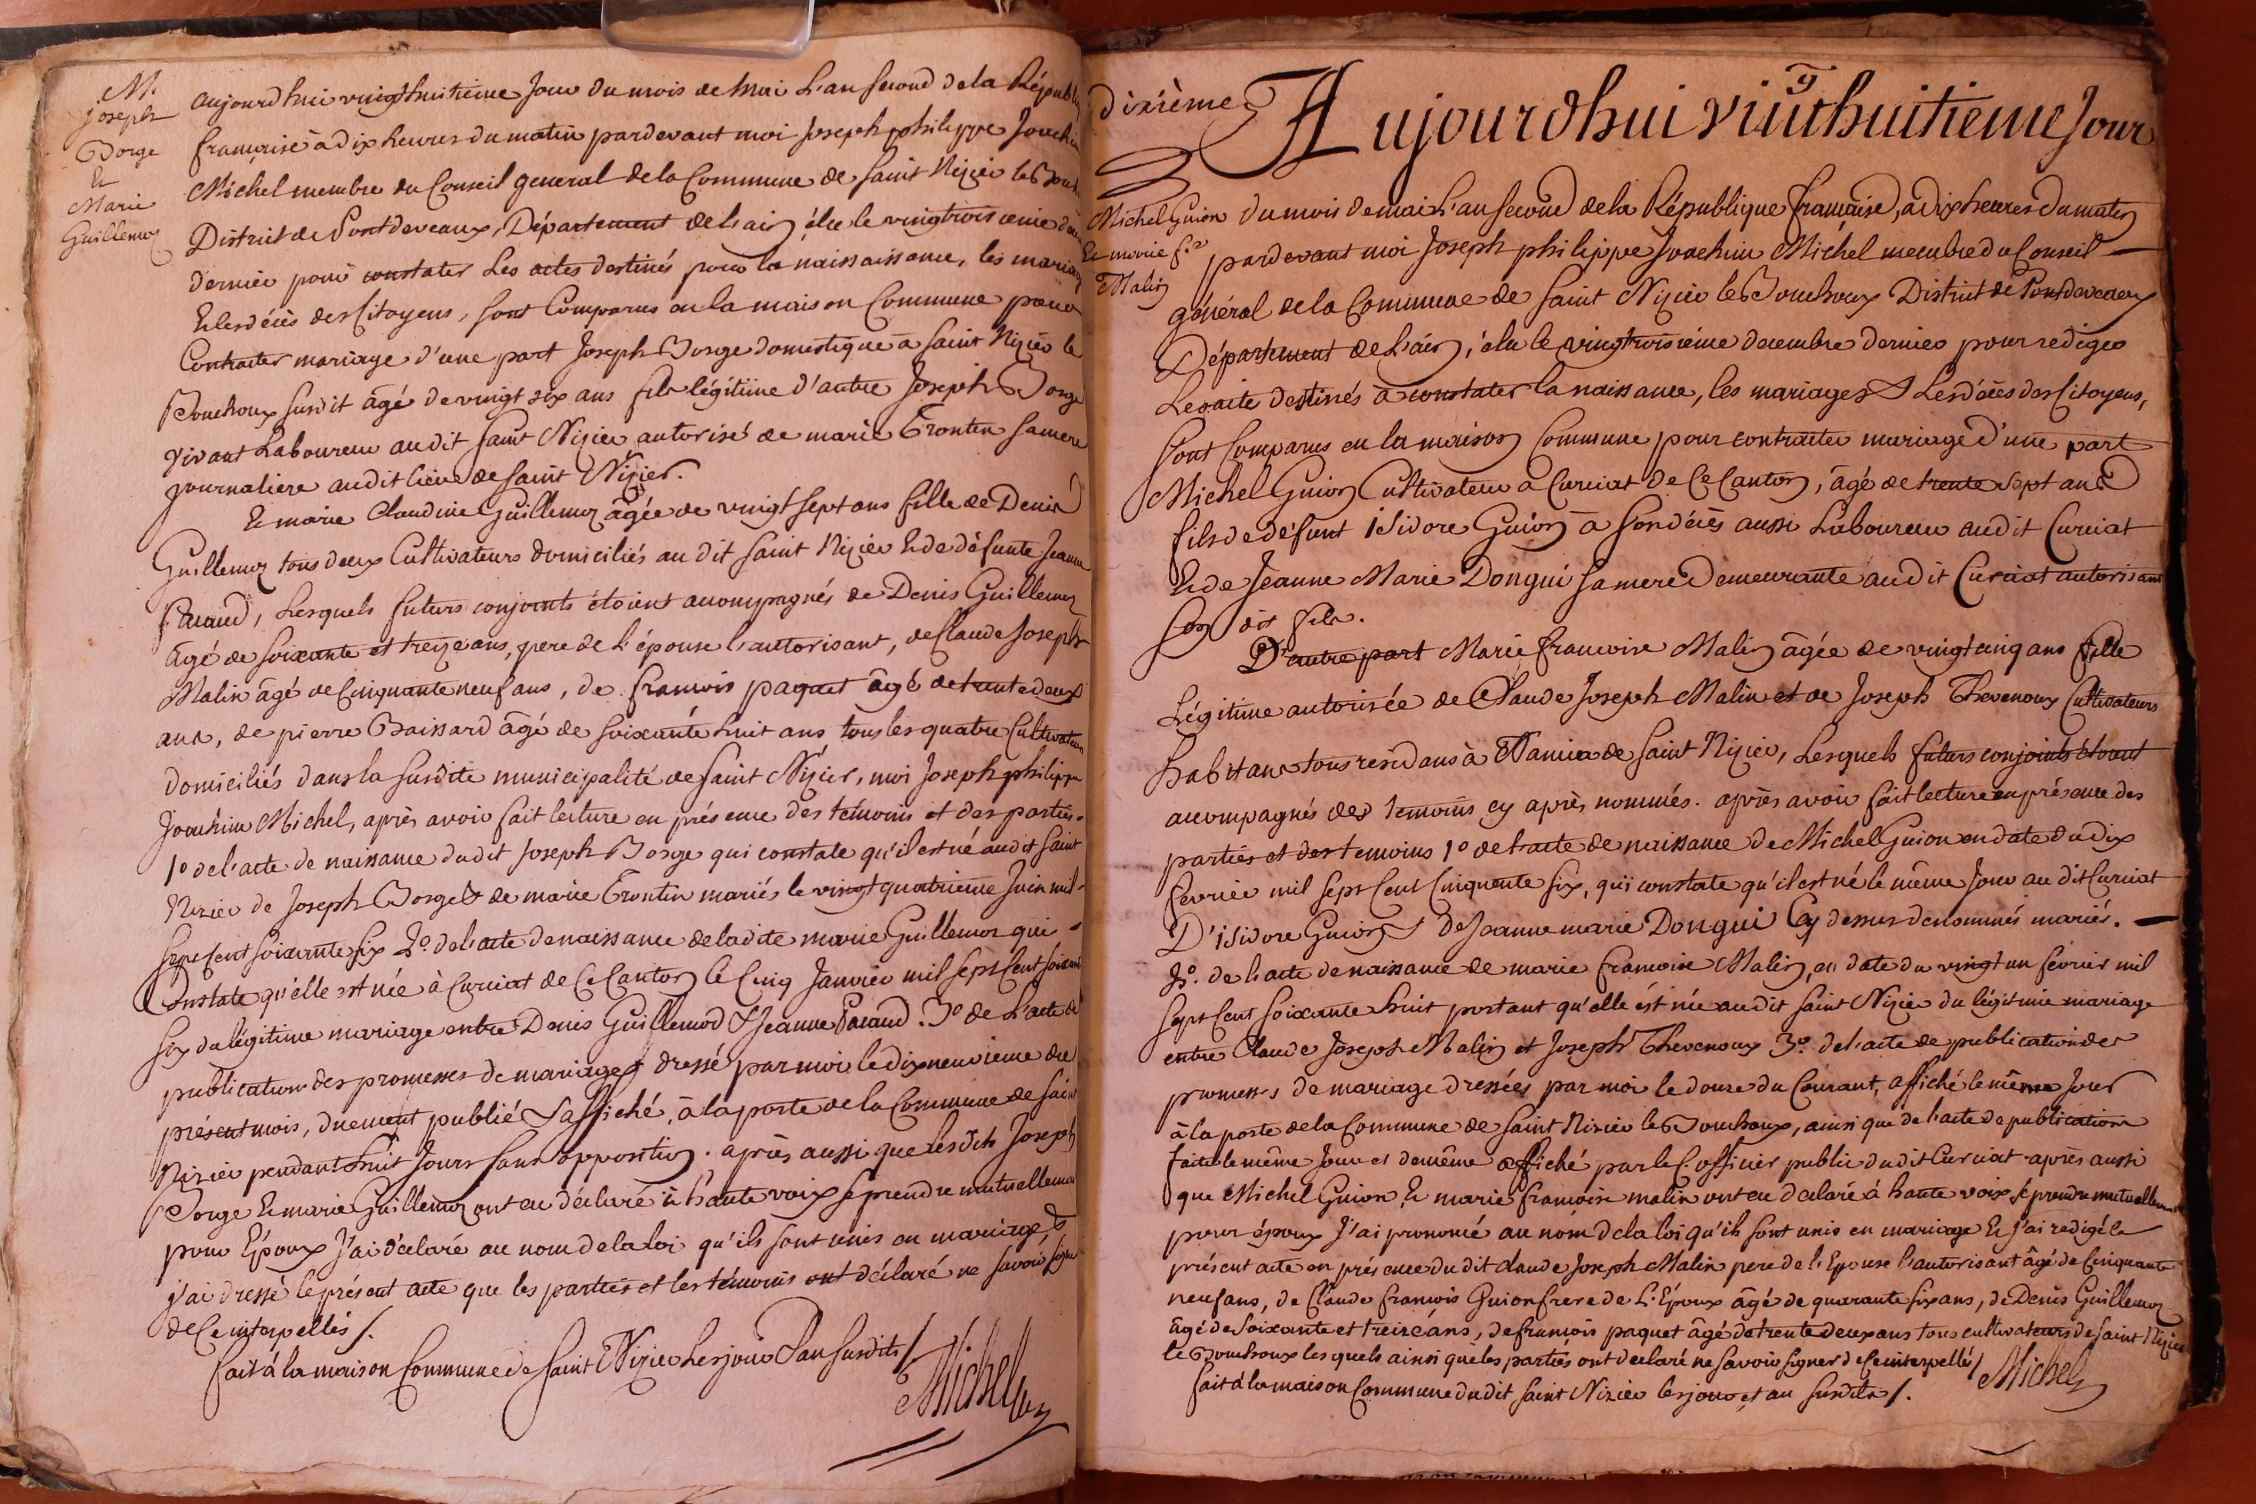 M.
joseph
Borge
Et
Marie
Guillemoz
aujourd'hui vingt huitieme Jour du mois de Mai L'an second de la Républi
françaisé à dix heures du matin pardevant moi Joseph philippe Joachi
Michel membre du Conseil general de la Commune de Saint Nizier le Bouch
District de Pontdevaux, Département de L'ain, élu le vingtroisieme
dernier pour constater Les actes destinés pour la naissaissance, les mariag
Et les décès des Citoyens, sont Comparus en la maison Commune pour
Contracter mariage d'une part Joseph Borge domestique à Saint Nizier le
Bouchoux susdit âgé de vingt six ans fils légitime d'autre Joseph Borge
vivant Laboureur audit Saint Nizier autorisé de marie Trontin sa mere
journaliere audit lieu de Saint Nizier.
Et marie Claudine Guillemoz âgée de vingt sept ans fille de Denis
Guillemoz tous deux Cultivateurs domiciliés au dit Saint Nizier Et de défunte Jeanne
Paraud, Lesquels futurs conjoints étoient accompagnés de Denis Guillemoz
âgé de soixante et treize ans, pere de L'épouse L'autorisant, de Claude Joseph
Malin âgé de Cinquante neuf ans, de françois paquet âgé de trente deux
ans, de pierre Baissard âgé de soixante huit ans tous les quatre Cultivateurs
domiciliés dans la susdite municipalité de Saint Nizier, moi Joseph philippe
Joachim Michel, après avoir fait lecture en présence des temoins et des parties
1º de l'acte de naissance dudit Joseph Borge qui constate qu'il est né audit Saint
Nizier de Joseph Borge & de marie Trontin mariés le vingt quatrieme Juin mil
sept Cent soixante six 2º. de L'acte de naissance de ladite marie Guillemoz qui
Constate qu'elle est née à Curciat de Ce Canton le Cinq Janvier mil sept Cent soixante
six du légitime mariage entre Denis Guillemod & Jeanne Paraud. 3º de L'acte de
publication des promesses de mariage dressé par moi le dixneuvieme du
présent mois, duement publié & affiché, à la porte de la Commune de Saint
Nizier pendant huit Jours sans opposition. après aussi que lesdits Joseph
Borge Et marie Guillemoz ont eu déclaré à haute voix se prendre mutuellement
pour Epoux J'ai déclaré au nom de la loi qu'ils sont unis en mariage, &
j'ai dressé le présent acte que les parties et les témoins ont déclaré ne savoir signer
de Ce interpellés /.
fait à la maison Commune de Saint Nizier Les jour & an susdits /
Michel
dixième
Aujourdhui vingthuitieme Jour
Michel Guion
Et marie f.se
Malin
du mois de mai L'an second de la République française, à dix heures du matin
pardevant moi Joseph philippe Joachim Michel membre du Conseil
général de la Commune de Saint Nizier le Bouchoux District de Pontdevaux
Département de L'ain, élu le vingtroisieme decembre dernier pour rediger
Les acte destinés à constater la naissance, les mariages & Les décès des Citoyens,
sont Comparus en la maison Commune pour contracter mariage d'une part
Michel Guion Cultivateur à Curciat de Ce Canton, âgé de trente sept ans
fils de défunt isidore Guion à son décès aussi Laboureur audit Curciat
Et de Jeanne Marie Dongui sa mere Demeurante audit Curciat autorisant
son dit fils.
D'autre part Marie francoise Malin âgée de vingt cinq ans fille
Légitime autorisée de Claude Joseph Malin et de Joseph Thevenoux Cultivateurs
habitans tous residans à de Saint Nizier, Lesquels futurs conjoints étoient
accompagnés des temoins cy après nommés. après avoir fait lecture en présence des
parties et des temoins 1º de L'acte de naissance de Michel Guion en date du dix
fevrier mil sept Cent Cinquante six, qui constate qu'il est né le même Jour au dit Curciat
D'isidore Guion & de Jeanne marie Dongui Cy dessus denommés mariés.
2º. de L'acte de naissance de marie francoise Malin, en date du vingt un fevrier mil
sept Cent soixante huit portant qu'elle est née audit Saint Nizier du légitime mariage
entre Claude Joseph Malin et Joseph Thevenoux 3º. de L'acte de publication des
promesses de mariage dressées par moi le douze du Courant, affiché le même Jour
à la porte de la Commune de Saint Nizier le Bouchoux, ainsi que de L'acte de publication
faite le même Jour et de même affiché par le C. officier public du dit Curciat après aussi
que Michel Guion Et marie francoise malin ont eu déclaré à haute voix se prendre mutuellement
pour époux J'ai prononcé au nom de la loi qu'ils sont unis en mariage Et j'ai redigé le
présent acte en présence du dit claude Joseph Malin pere de L'Epouse L'autorisant âgé de Cinquante
neuf ans, de Claude francois Guion frere de L'Epoux âgé de quarante six ans, de Denis Guillemoz
âgé de soixante et treize ans, de francois paquet âgé de trente deux ans tous cultivateurs de Saint Nizier
le Bouchoux lesquels ainsi que les parties ont declaré ne savoir signer de Ce interpellés /
fait à la maison Commune du dit Saint Nizier les jour et an susdits /.
Michel